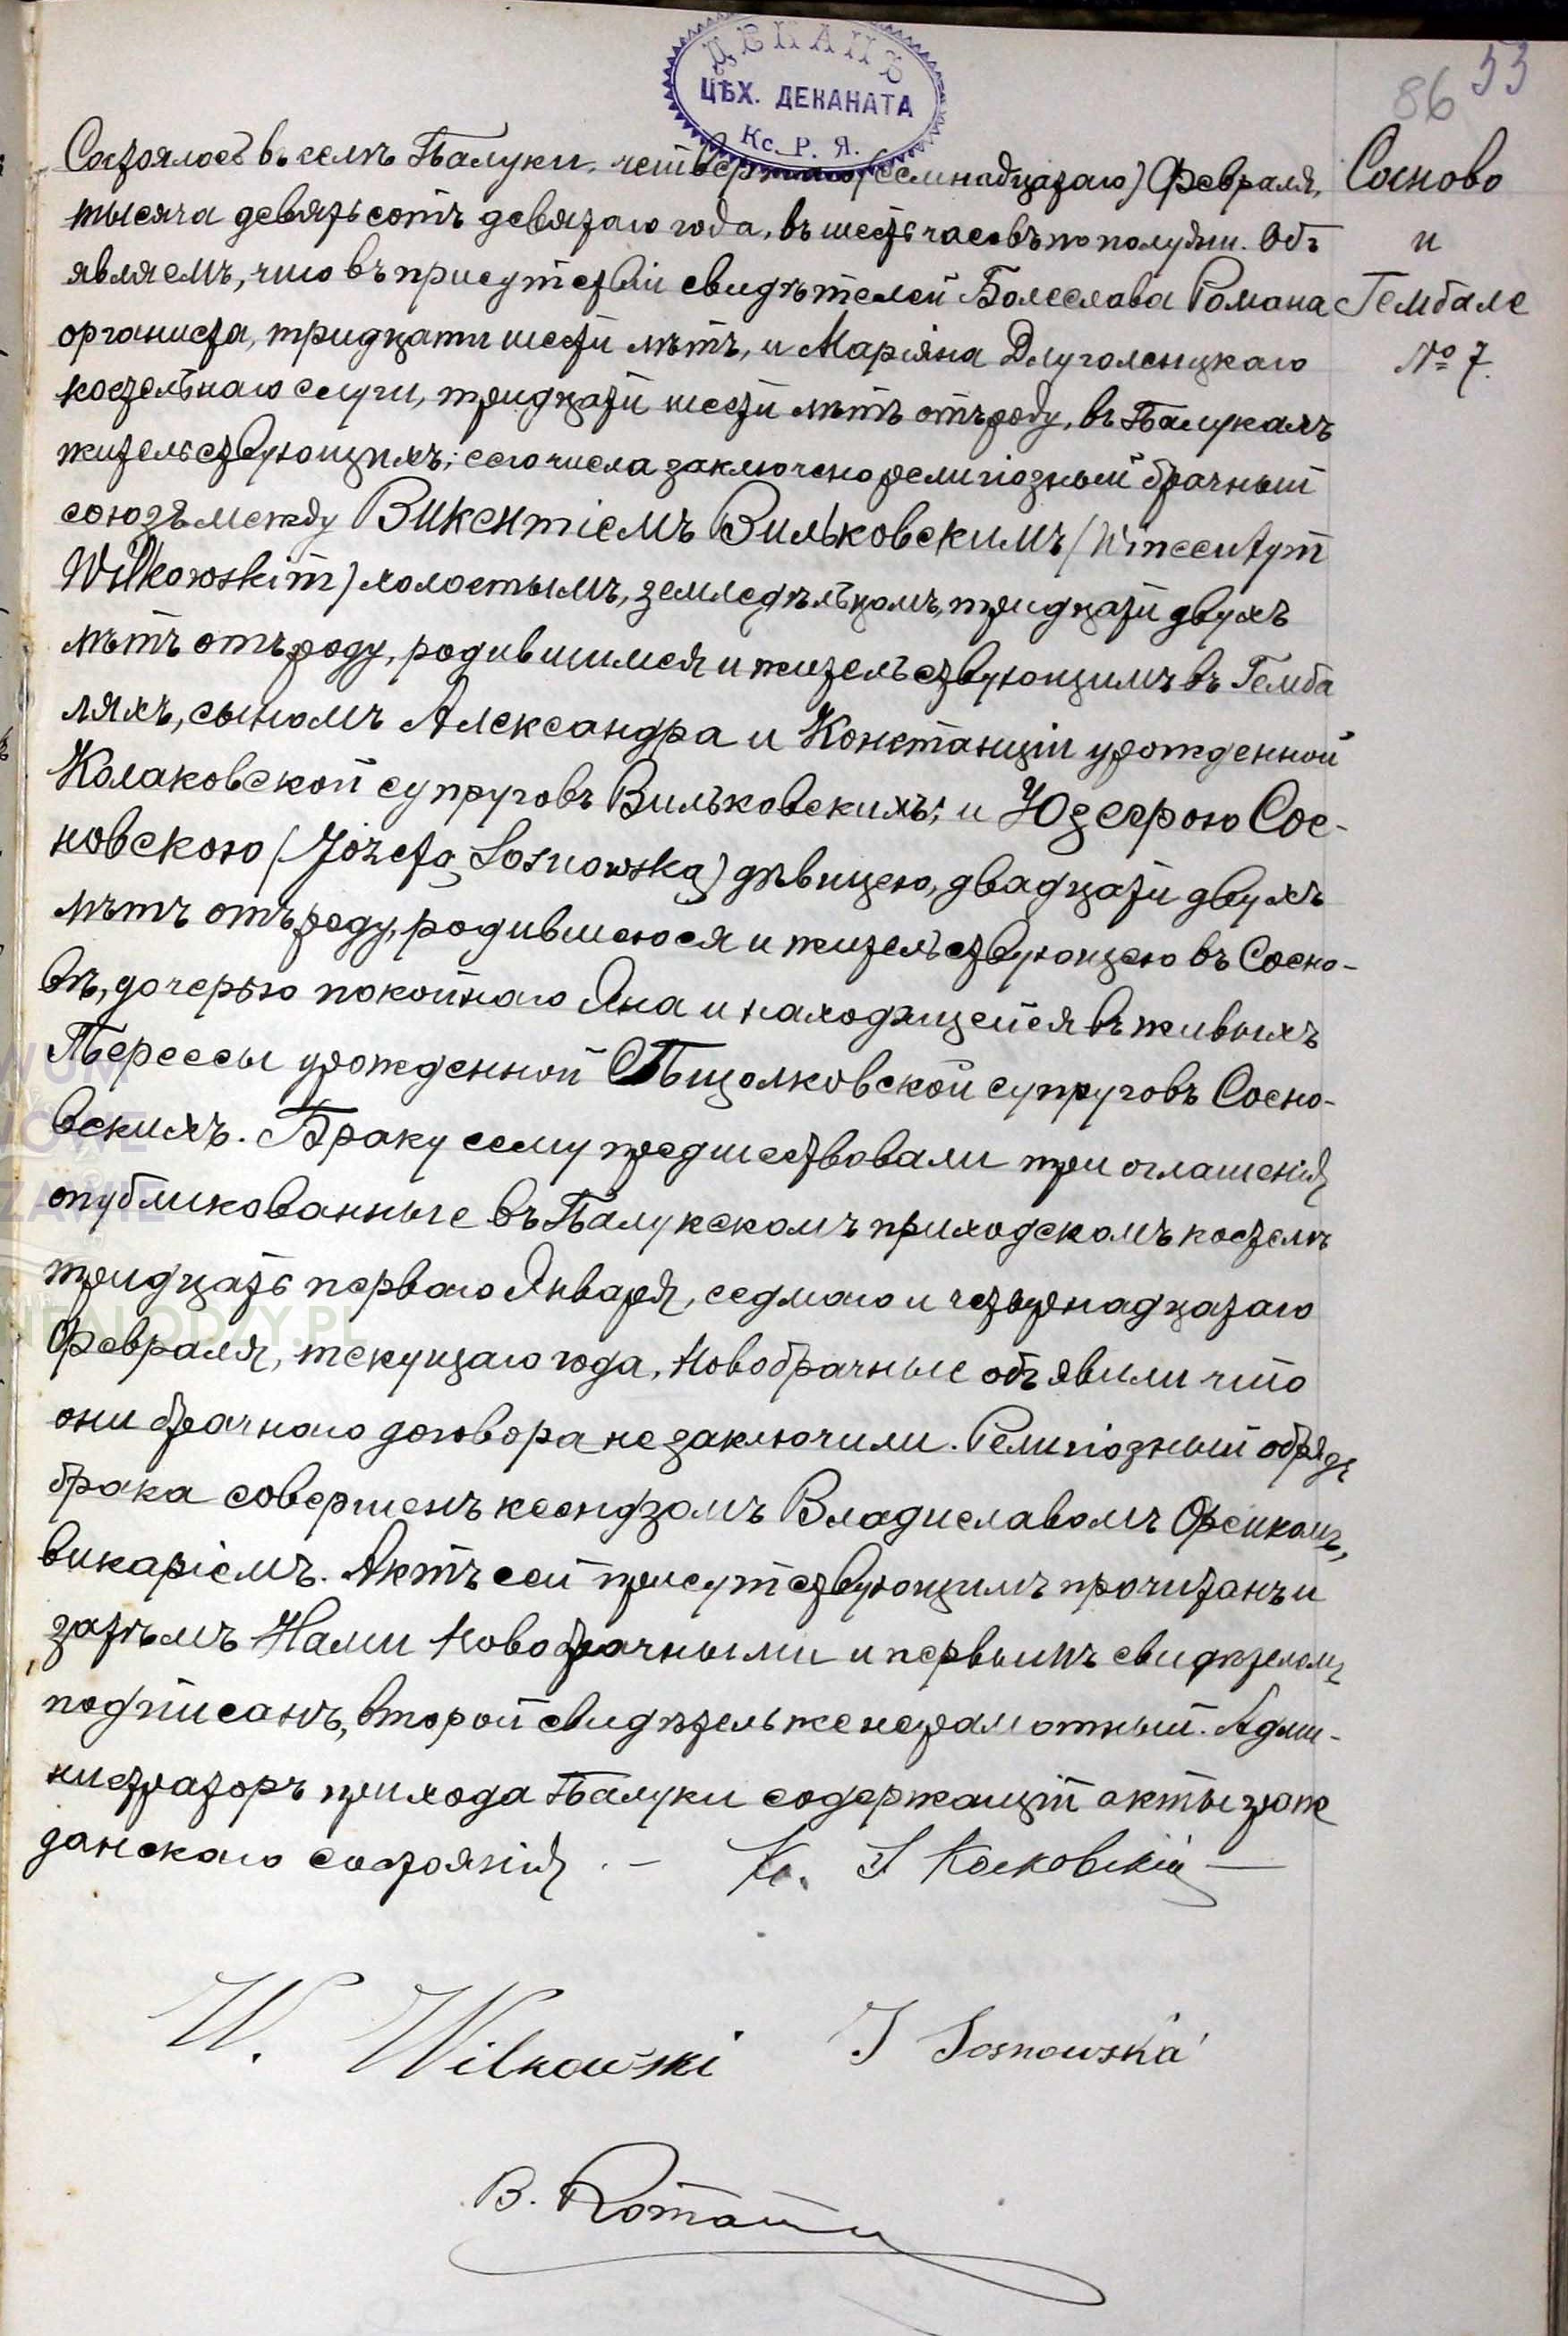 ДЕКАНЪ
ЦѢХ. ДЕКАНАТА
Кс. Р. Я.
53
86
Состоялось въ селѣ Палуки, четвертаго (семнадцатаго) Февраля,
тысяча девятьсотъ девятаго года, въ шесть часовъ по полудни. Объ
являемъ, что въ присутствіи свидѣтелей Болеслава Романа
органиста, тридцати шести лѣтъ, и Маріяна Длуголенцкаго
костельнаго слуги, тридцати шести лѣтъ отъ роду, въ Палукахъ
жительствующихъ; сего числа заключено религіозный брачный
союзъ между Викентіемъ Вильковскимъ (Wincentym
Wilkowskim) холостымъ, земледѣльцомъ, тридцати двухъ
лѣтъ отъ роду, родившимся и жительствующимъ въ Гемба
ляхъ, сыномъ Александра и Констанціи урожденной
Колаковской супруговъ Вильковскихъ; и Юзефою Сос-
новскою (Józefą Sosnowską) дѣвицею, двадцати двухъ
лѣтъ отъ роду, родившеюся и жительствующею въ Сосно-
вѣ, дочерью покойнаго Яна и находящейся въ живыхъ
Терессы урожденной Пщолковской супруговъ Сосно-
вскихъ. Браку сему предшествовали три оглашенія
опубликованные въ Палукскомъ приходскомъ костелѣ
тридцать перваго Января, седмаго и четырнадцатаго
Февраля, текущаго года, Новобрачные объявили что
они брачнаго договора не заключили. Религіозный обрядъ
брака совершенъ ксендзомъ Владиславомъ Фрейкомъ,
викаріемъ. Актъ сей присутствующимъ прочитанъ и
затѣмъ Нами Новобрачными и первымъ свидѣтелемъ
подписанъ, второй свидѣтель же неграмотный. Адми-
нистраторъ прихода Палуки содержащій акты граж
данскаго состоянія. — Кс. І Косковскій —
Сосново
и
Гембале
№ 7.
W. Wilkowski J Sosnowska
B. Roman